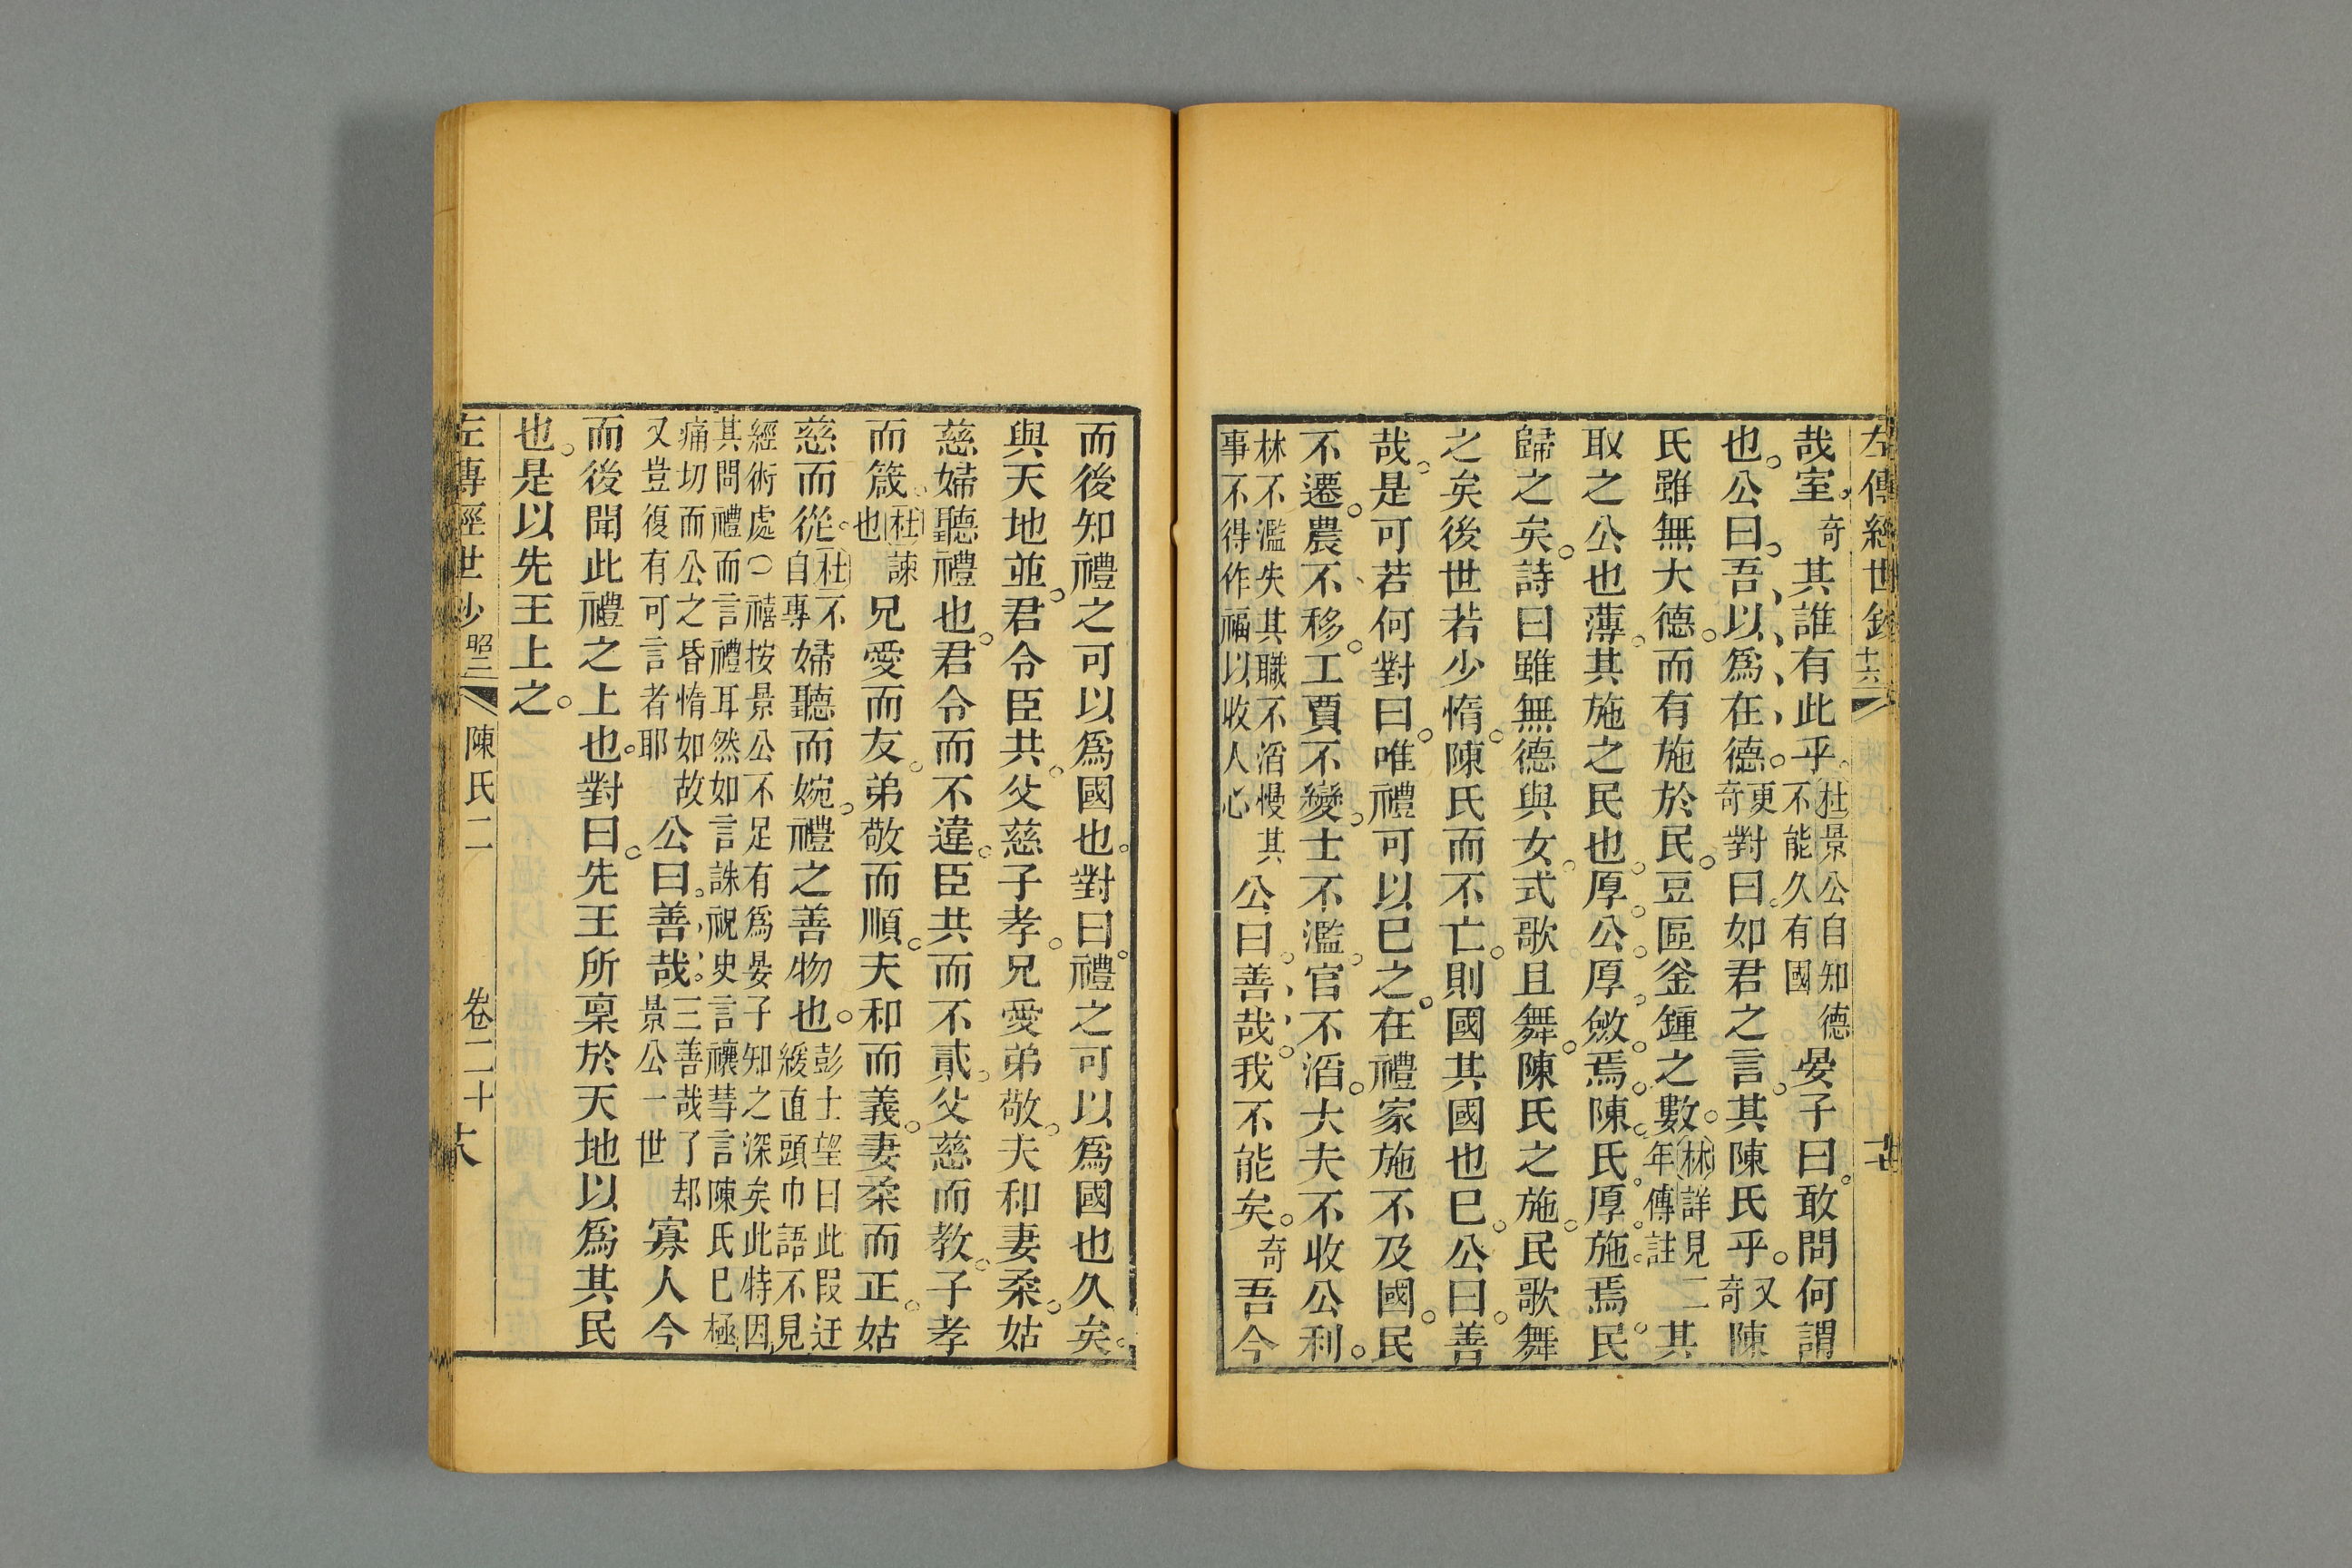 左傳經世鈔
哉室。奇其誰有此乎。杜景公自知德不能久有國晏子曰。敢問何謂
也。公曰。吾、以、爲、在、德。更奇對曰。如君之言。其陳氏乎。又奇陳
氏雖無大德。而有施於民。豆區釜鍾之數。林詳見二年傳註其
取之公也薄。其施之民也。厚。公。厚。斂。焉。陳。氏。厚。施。焉。民。
歸之矣。詩曰雖無德與女。式歌且舞。陳氏之施。民歌舞
之矣後世若少惰。陳氏而不亡。則國其國也已。公曰。善
哉。是可若何對曰。唯禮可以已之。在禮家施不及國。民
不遷。農不移。工賈不變。士不濫。官不滔。大夫不收公利。
林不濫失其職不滔慢其事不得作福以收人心公曰。善、哉、。我不能矣。奇吾今
而後知禮之可以爲國也。對曰。禮之可以爲國也久矣。
與天地並。君令臣共。父慈子孝。兄愛弟敬。夫和妻柔。姑
慈婦聽禮也。君令而不違。臣共而不貳。父慈而教。子孝
而箴。杜諫也兄愛而友。弟敬而順。夫和而義。妻柔而正。姑
慈而從。杜不自專婦聽而婉。禮之善物也。彭士望曰此叚迂緩直頭巾語不見
經術處○禧按景公不足有爲晏子知之深矣此特因其問禮而言禮耳然如言誅祝史言禳彗言陳氏已極
痛切而公之昏惰如故又豈復有可言者耶公曰。善、哉、。三善哉了却景公一世寡人今
而後聞此禮之上也。對曰。先王所稟於天地以爲其民
也。是以先王上之。
左傳經世鈔 陳氏二 卷二十